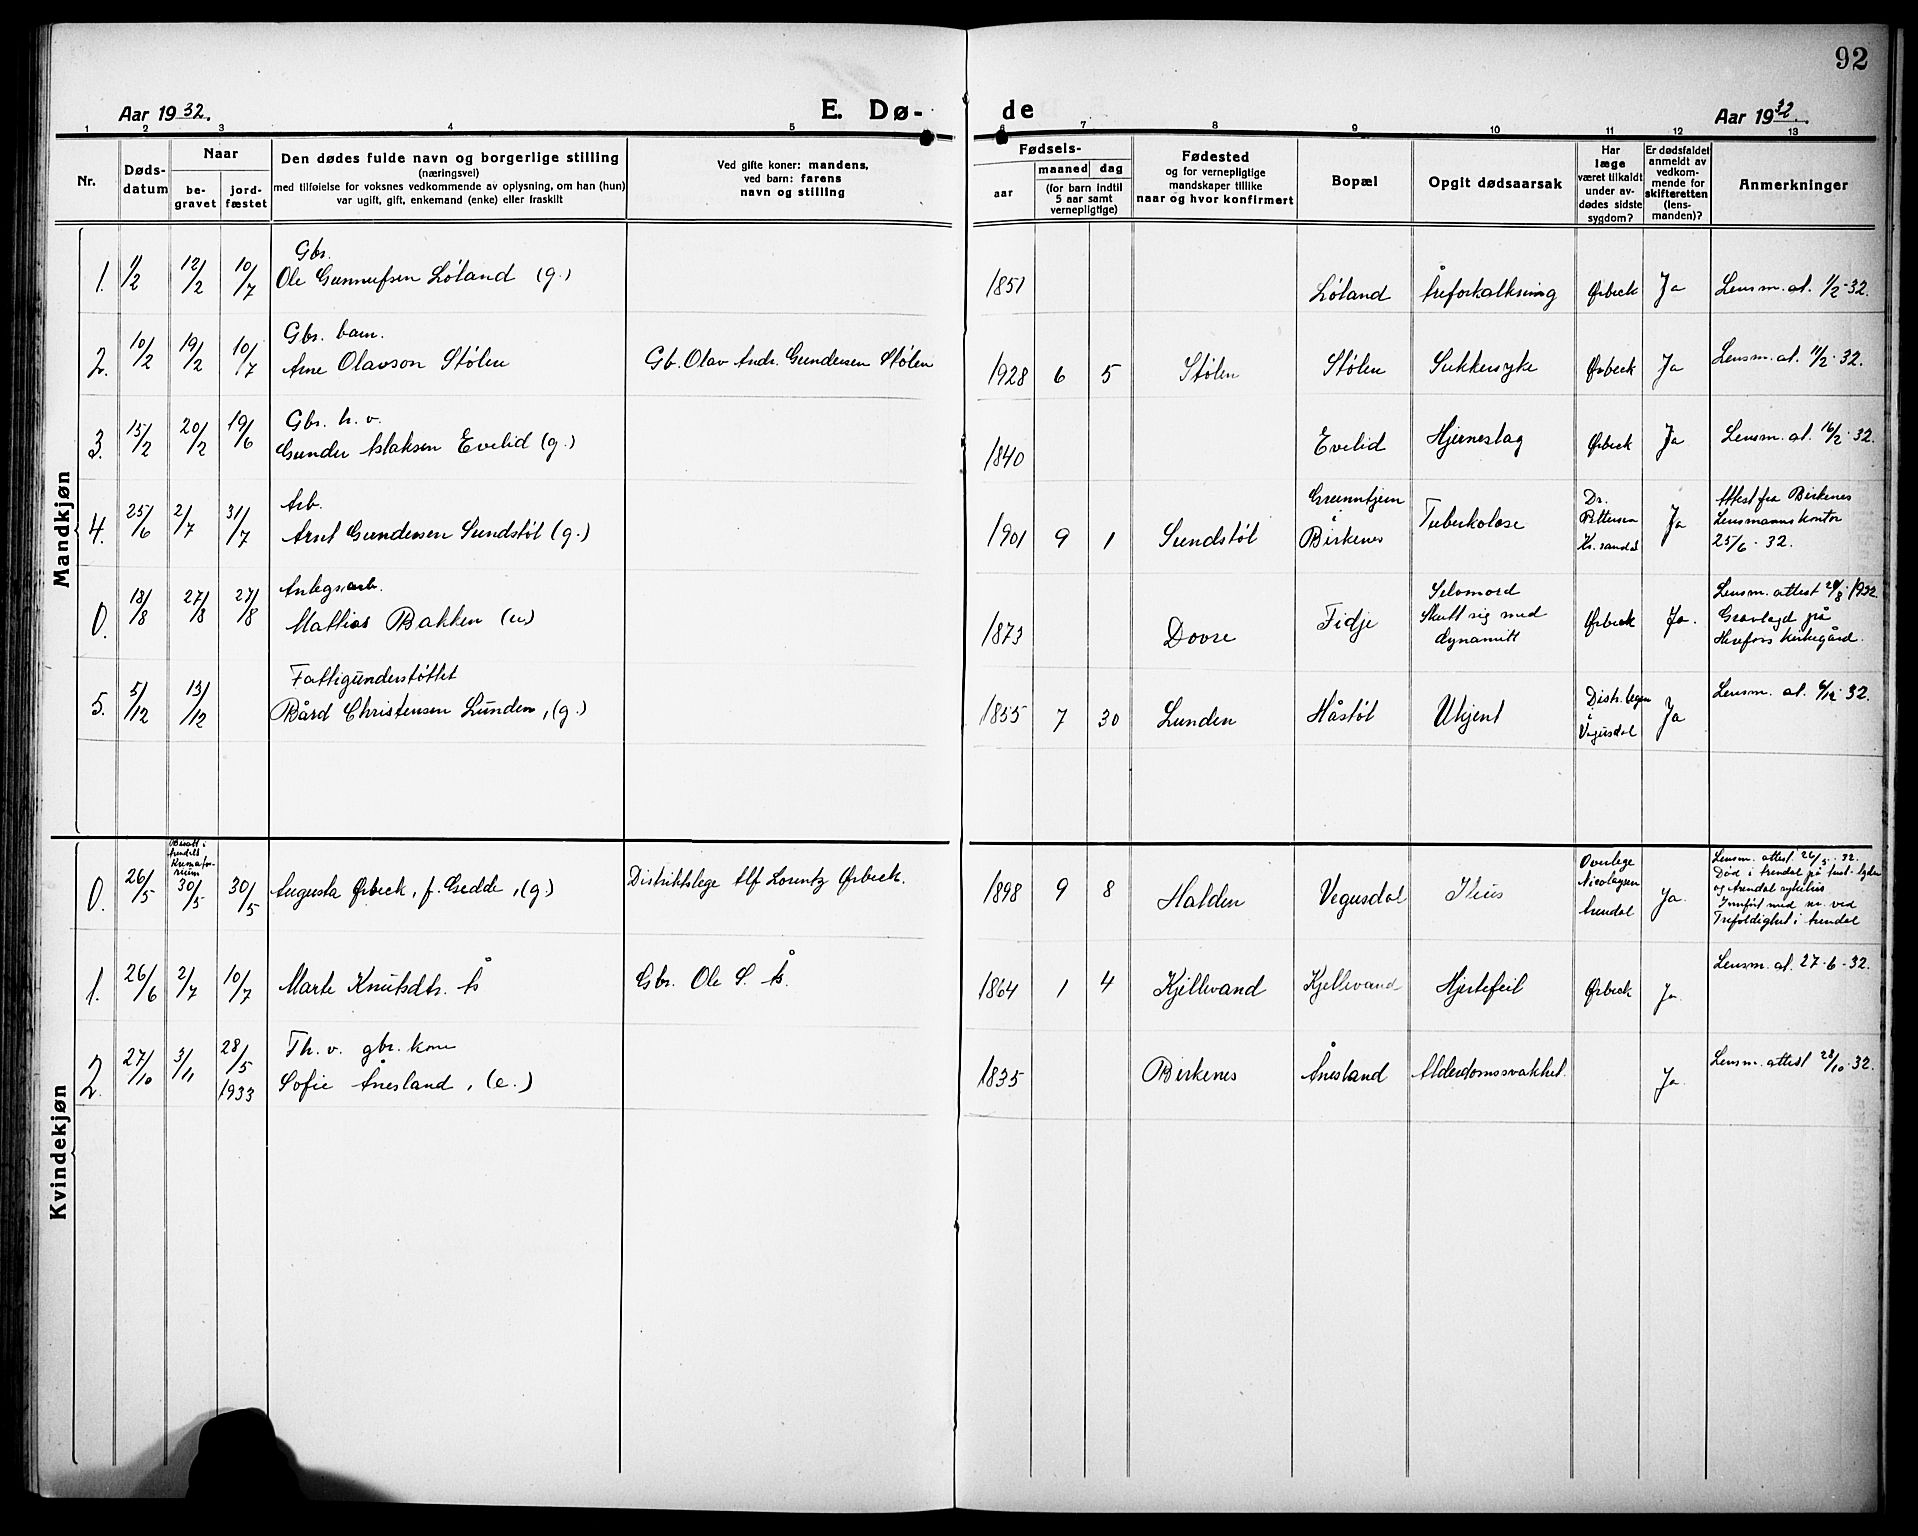 92
Aar 1932.
E. Dø-
de
Aar 1932.
1 2 3 4 5 6 7 8 9 10 11 12 13
Nr.
Døds-
datum
Naar
be-
gravet
jord-
fæstet
Den dødes fulde navn og borgerlige stilling
(næringsvei)
med tilføielse for voksnes vedkommende av oplysning, om han (hun)
var ugift, gift, enkemand (enke) eller fraskilt
Ved gifte koner: mandens,
ved barn: farens
navn og stilling
Fødsels-
aar
maaned dag
(for barn indtil
5 aar samt
vernepligtige)
Fødested
og for vernepligtige
mandskaper tillike
naar og hvor konfirmert
Bopæl
Opgit dødsaarsak
Har
læge
været tilkaldt
under av-
dødes sidste
sygdom?
Er dødsfaldet
anmeldt av
vedkom-
mende for
skifteretten
(lens-
manden)?
Anmerkninger
Mandkjøn
Gbr.
1. 11/2 12/2 10/7 Ole Gunnufsen Løland (g.) 1851 Løland Åreforkalkning Ørbeck Ja Lensm. at. 1/2-32.
Gbr. barn.
2. 10/2 19/2 10/7 Arne Olavson Stølen Gb. Olav Andr. Gundersen Stølen 1928 6 5 Stølen Stølen Sukkersyke Ørbeck Ja Lensm. at. 11/2-32.
Gbr. h. v.
3. 15/2 20/2 19/6 Gunder Aslaksen Evelid (g.) 1840 Evelid Hjerneslag Ørbeck Ja Lensm. at. 16/2-32.
Arb.
4. 25/6 2/7 31/7 Arnt Gundersen Sundstøl (g.) 1901 9 1 Sundstøl
i
Birkenes
Tuberkolose
Dr.
Pettersen
Kr.sand
Ja
Attest fra Birkenes
Lensmannskontor
25/6-32.
Anlegsarb.
0. 18/8 27/8 27/8 Mathias Bakken (u) 1873 Dovre Fidje
Selvmord
Skutt sig med
dynamitt
Ørbeck Ja.
Lensm. attest /8 1932.
Gravlagd på
Herefoss kirkegård.
Fattigunderstøttet
5. 5/12 13/12 Bård Christensen Lunden, (g.) 1855 7 30 Lunden Håstøl Ukjent
Distr.legen
i
Vegusdal
Ja
Lensm. at. 6/12-32.
Kvindekjøn
Besatt i
Arendals
Kremato-
rium
0. 26/5 30/5 30/5 Augusta Ørbeck, f. Gedde, (g.) Distriktslege Alf Lorentz Ørbeck. 1898 9 8 Halden Vegusdal Ileus
Overlege
Nicolaysen
Arendal
Ja.
Lensm. attest 26/5-32.
Død i Arendal på
og Arendal sykehus
Innført med nr. ved
Trefoldighet i Arendal
1. 26/6 2/7 10/7 Marte Knutsdtr. Ås Gbr. Ole S. Ås. 1864 1 4 Kjellevand Kjellevand Hjertefeil Ørbeck Ja. Lensm. at. 27-6-32.
Th. v. gbr. kone
2. 27/10 3/11 28/5
1933 Sofie Ånesland, (e.) 1835 Birkenes Ånesland Alderdomssvakhet. Ja. Lensm. attest 28/10-32.